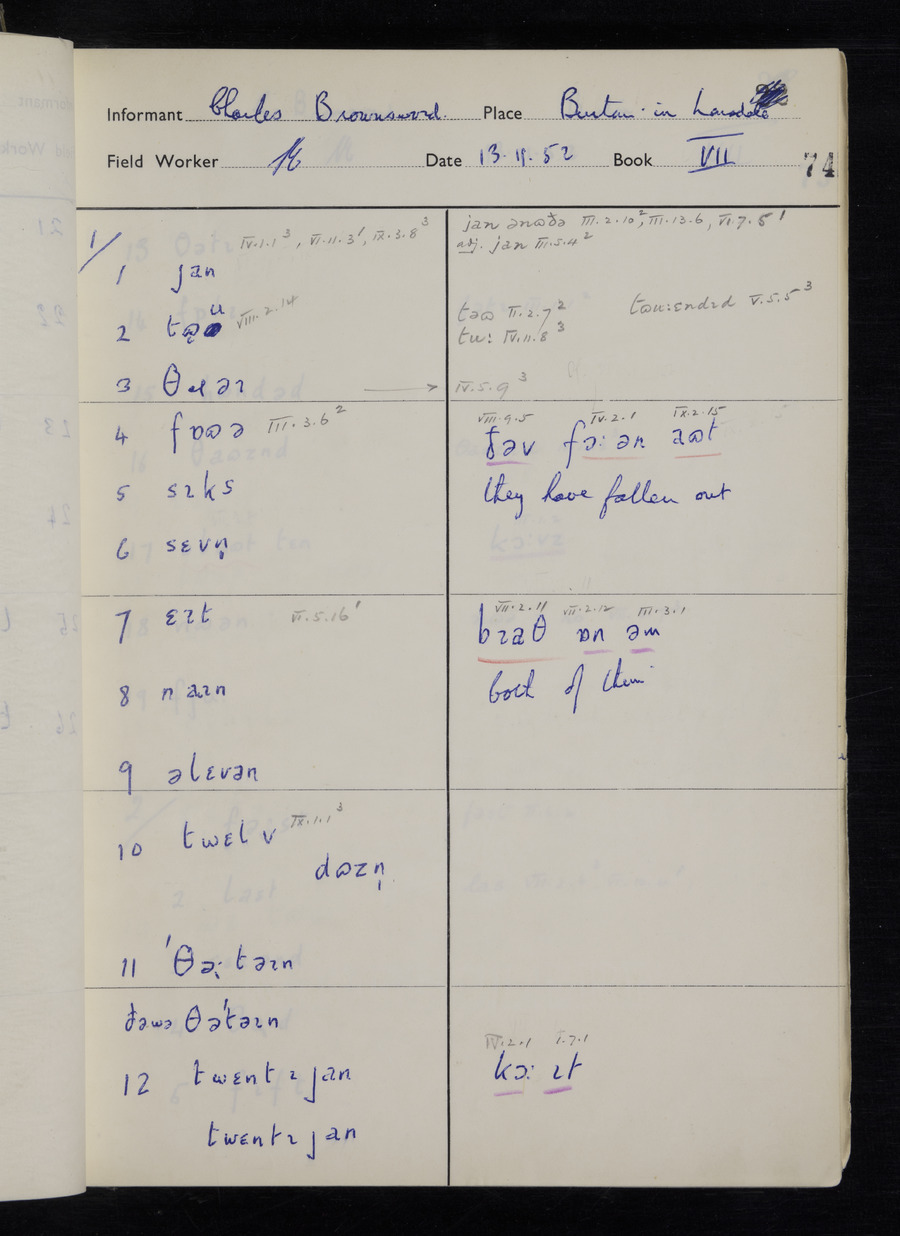 Informant Charles Brownsword. Place Burton-in Lonsdale
Field Worker Date 13.11.52 Book VII 74
1/
IV.1.1³, VI.11.3¹, IX.3.8³
1 jan
2 tə̨ɷu VIII.2.14
3 θɹəɪ →
4 fɒɷə III.3.6²
5 sɪks
6 sɛvn̩
7 ɛɪt VI.5.16¹
8 naɪn
9 əlɛvən
10 twɛlv IX.1.1³
dɷzn̩
11 ˈθə:təɪn
ðəwə θəˈtəɪn
12 twɛntɪ jan
twɛntɪ jan
jan ənɷðə III.2.10², III.13.6, VI.7.5¹
adj. jan III.5.4²
təɷ II.2.7² tɷu:ɛndɪd V.5.5³
tu: IV.11.8³
IV.5.9³
VIII.9.5 IV.2.1 IX.2.15
ðəv fɔ:ən aɷt
they have fallen out
VII.2.11 VII.2.12 III.3.1
bɪaθ ɒn əm
both of them
IV.2.1 I.7.1
kɔ: ɪt